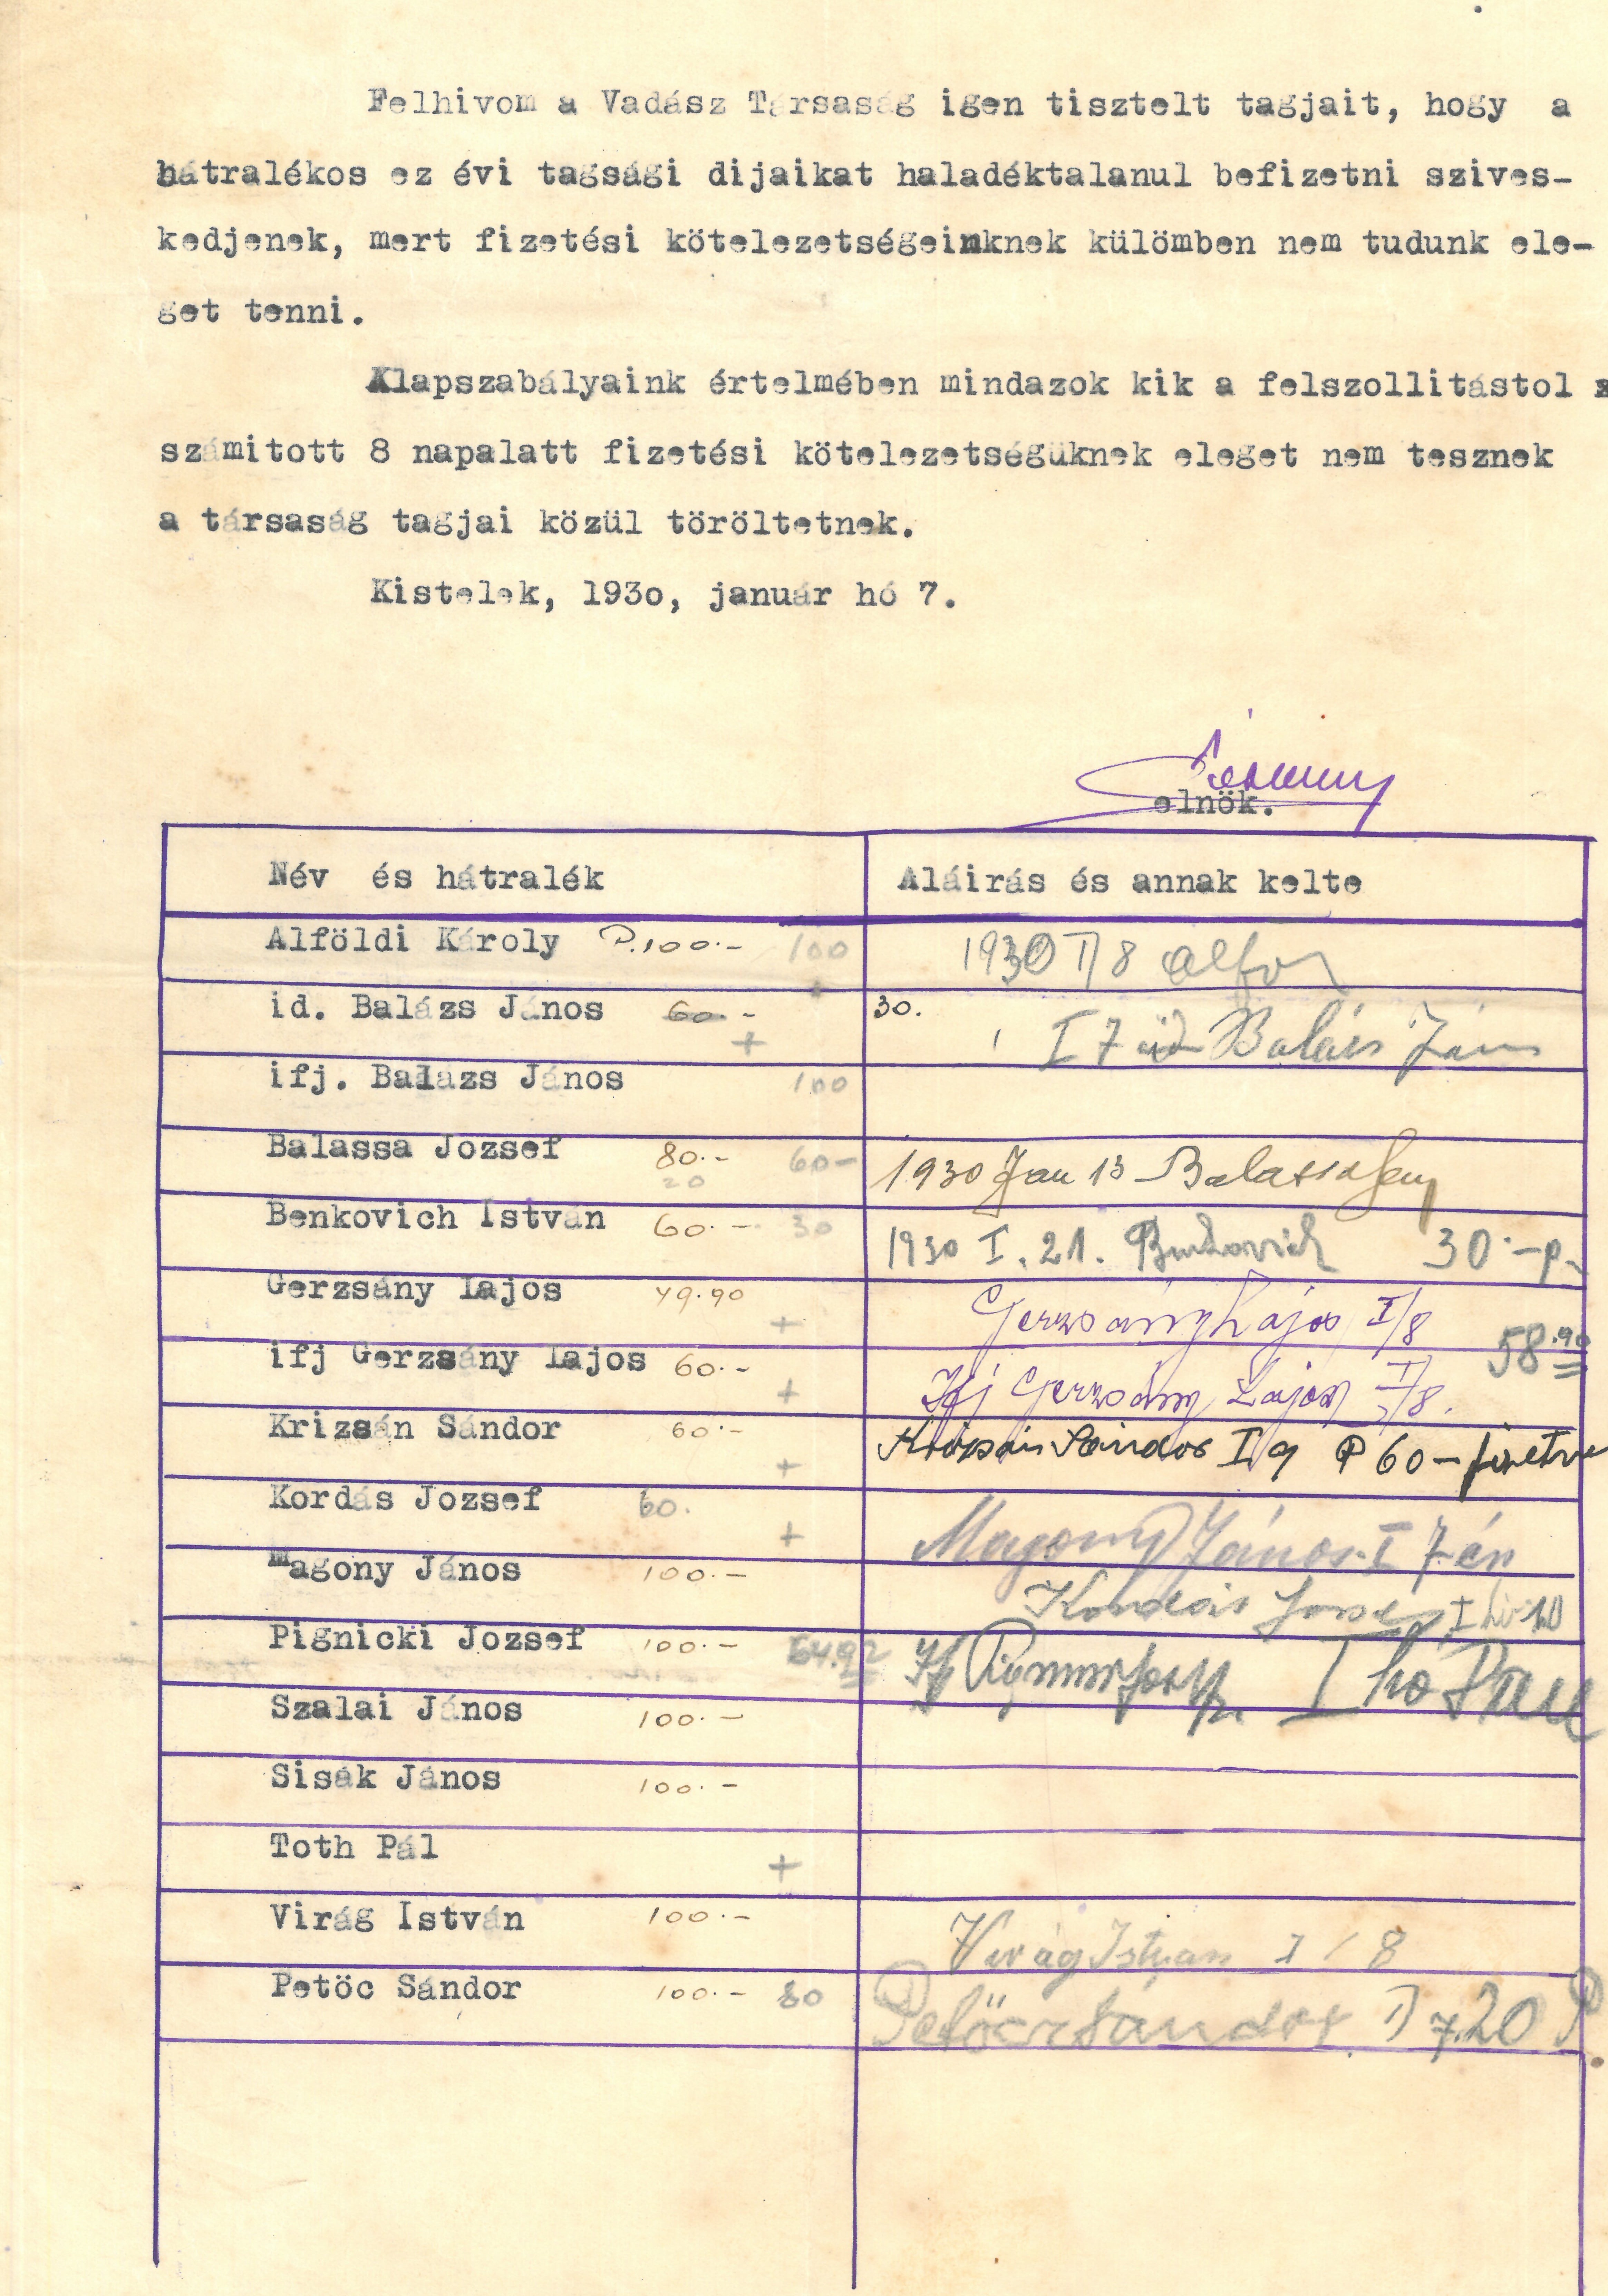 Felhivom a Vadász Társaság igen tisztelt tagjait, hogy a
hátralékos ez évi tagsági dijaikat haladéktalanul befizetni szives-
kedjenek, mert fizetési kötelezetségeinknek külömben nem tudunk ele-
get tenni.
Alapszabályaink értelmében mindazok kik a felszollitástol
számitott 8 napalatt fizetési kötelezetségüknek eleget nem tesznek
a társaság tagjai közül töröltetnek.
Kistelek, 193o, január hó 7.
elnök.
Név és hátralék Aláirás és annak kelte
Alföldi Károly P.100.- 100 1930 I/8
id. Balázs János 60.- + 30. I 7 id Balázs János
ifj. Balázs János 100
Balassa Jozsef 80.- 20 60- 1930 Jan 13 Balassa
Benkovich István 60.- 30 1930 I. 21. Benkovich 30.-p.
Gerzsány Lajos 49.90 + Gerzsány Lajos I/8
58.90
ifj Gerzsány Lajos 60.- + Ifj Gerzsány Lajos I/8.
Krizsán Sándor 60.- + Krizsán Sándor I 9 P 60- fizetve
Kordás Jozsef 60. + Magony János I 7 én
Magony János 100.- Kordás Jozsef I hó 10
Pignicki Jozsef 100.- 64.92 Ifj
Szalai János 100.-
Sisák János 100.-
Toth Pál +
Virág István 100.- Virág Istvan I / 8
Petöc Sándor 100.- 80 Petőcz Sandor I 7. 20 P.